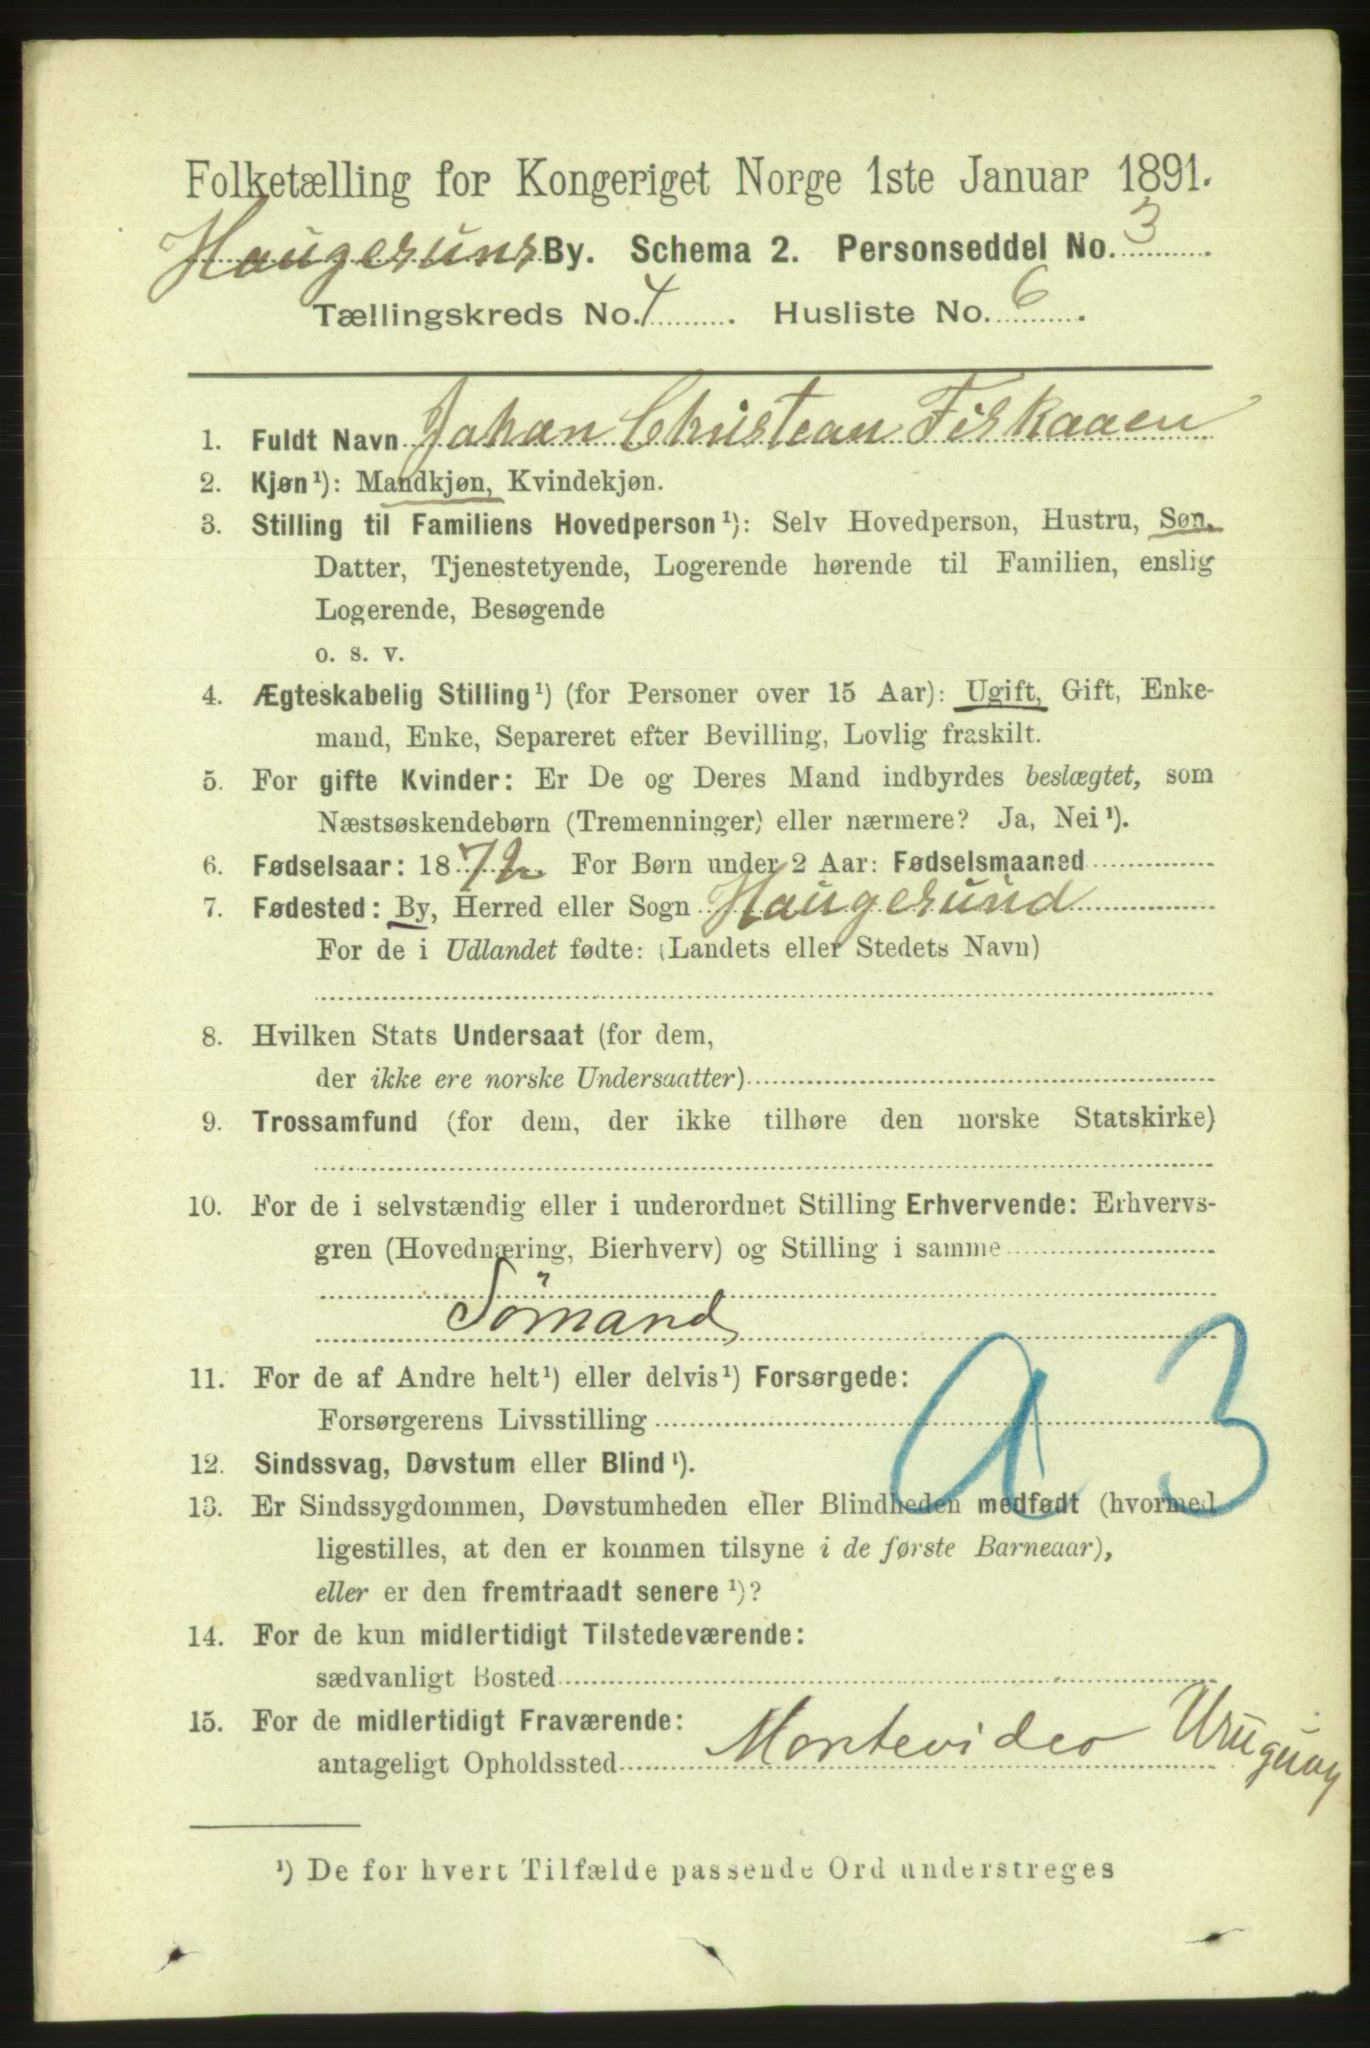 Folketælling for Kongeriget Norge 1ste Januar 1891.
Haugesuns By. Schema 2. Personseddel No. 3
Tællingskreds No. 4. Husliste No. 6.
1. Fuldt Navn Johan Christean Fiskaaen
2. Kjøn¹): Mandkjøn, Kvindekjøn.
3. Stilling til Familiens Hovedperson¹): Selv Hovedperson, Hustru, Søn,
Datter, Tjenestetyende, Logerende hørende til Familien, enslig
Logerende, Besøgende
o. s. v.
4. Ægteskabelig Stilling¹) (for Personer over 15 Aar): Ugift, Gift, Enke-
mand, Enke, Separeret efter Bevilling, Lovlig fraskilt.
5. For gifte Kvinder: Er De og Deres Mand indbyrdes beslægtet, som
Næstsøskendebørn (Tremenninger) eller nærmere? Ja, Nei¹).
6. Fødselsaar: 1872. For Børn under 2 Aar: Fødselsmaaned
7. Fødested: By, Herred eller Sogn Haugesund
For de i Udlandet fødte: (Landets eller Stedets Navn)
8. Hvilken Stats Undersaat (for dem,
der ikke ere norske Undersaatter)
9. Trossamfund (for dem, der ikke tilhøre den norske Statskirke)
10. For de i selvstændig eller i underordnet Stilling Erhvervende: Erhvervs-
gren (Hovednæring, Bierhverv) og Stilling i samme
Sömand
11. For de af Andre helt¹) eller delvis¹) Forsørgede:
Forsørgerens Livsstilling
a 3
12. Sindssvag, Døvstum eller Blind¹).
13. Er Sindssygdommen, Døvstumheden eller Blindheden medfødt (hvormed
ligestilles, at den er kommen tilsyne i de første Barneaar),
eller er den fremtraadt senere¹)?
14. For de kun midlertidigt Tilstedeværende:
sædvanligt Bosted
15. For de midlertidigt Fraværende:
antageligt Opholdssted Montevideo Uruguay
¹) De for hvert Tilfælde passende Ord understreges